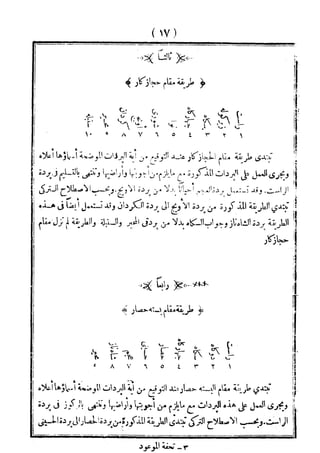 ( ١٧ )
ثالثاً
﴿ طريقة مقام حجازكار ﴾
١ ٢ ٣ ٤ ٥ ٦ ٧ ٨ ٩ ١٠
تبتدى طريقة مقام الحجازكار عند التوقيع من أية البردات الموضحة أسماؤها أعلاه
ويجرى العمل على البردات المذكورة مع مايلزم من أجوبتها وأراضيها وتنتهى بالتسليم فى بردة
الراست. وقد تستعمل بردة العجم أحياناً بدلا من بردة الاويج. وبحسب الاصطلاح التركى
تبتدي الطريقة المذكورة من بردة الأويج الى بردة الكردان وقد تستعمل أيضاً فى هذه
الطريقة بردة الشاهناز وجواب السيكاه بدلا من بردتى المحير والسنبلة والطريقة لم تزل مقام
حجازكار
رابعاً
﴿ طريقة مقام بسته حصار ﴾
راست دوكاه حصار
١ ٢ ٣ ٤ ٥ ٦ ٧ ٨ ٩
تبتدي طريقة مقام البسته حصار عند التوقيع من أية البردات الموضحة أسماؤها أعلاه
ويجرى العمل على هذه البردات مع مايلزم من أجوبتها وأراضيها وتنتهى بالركوز فى بردة
الراست. وبحسب الاصطلاح التركى تبتدى الطريقة المذكورة من بردة الحصار الى بردة الحسينى
٣ - تحفة الموعود